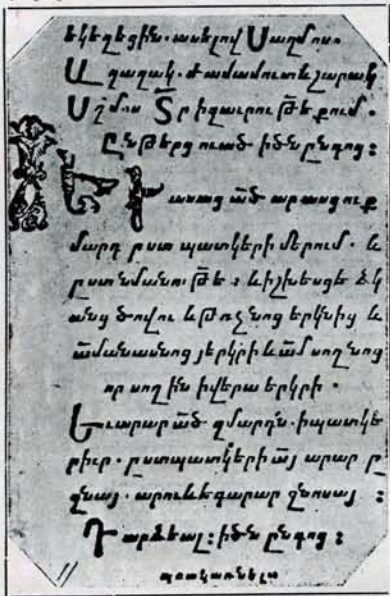 եկեղեցին. ասելով Սաղմոս.
Աղաղակ. ժամամուտն և շարակ
Սղմոս Տր իզաւրու թե քում.
Ընթերցուած ի ծննդոց :
Եւ ասաց ած արասցուք
մարդ ըստ պատկերի մերում. և
ըստ նմանու թե : և իշխեսցե ձկ
անց ծովու և թռչնոց երկնից և
ամ անասնոց յերկրի և ամ սողնոց
որ սողին ի վերա երկրի.
Եւ արար ած զմարդն. ի պատկե
րիւր. ըստ պատկերի այ արար ը
զնայ. արու և եգ արար զնոսայ :
Դարձեալ : ի ծննդոց :
պսակառնելս